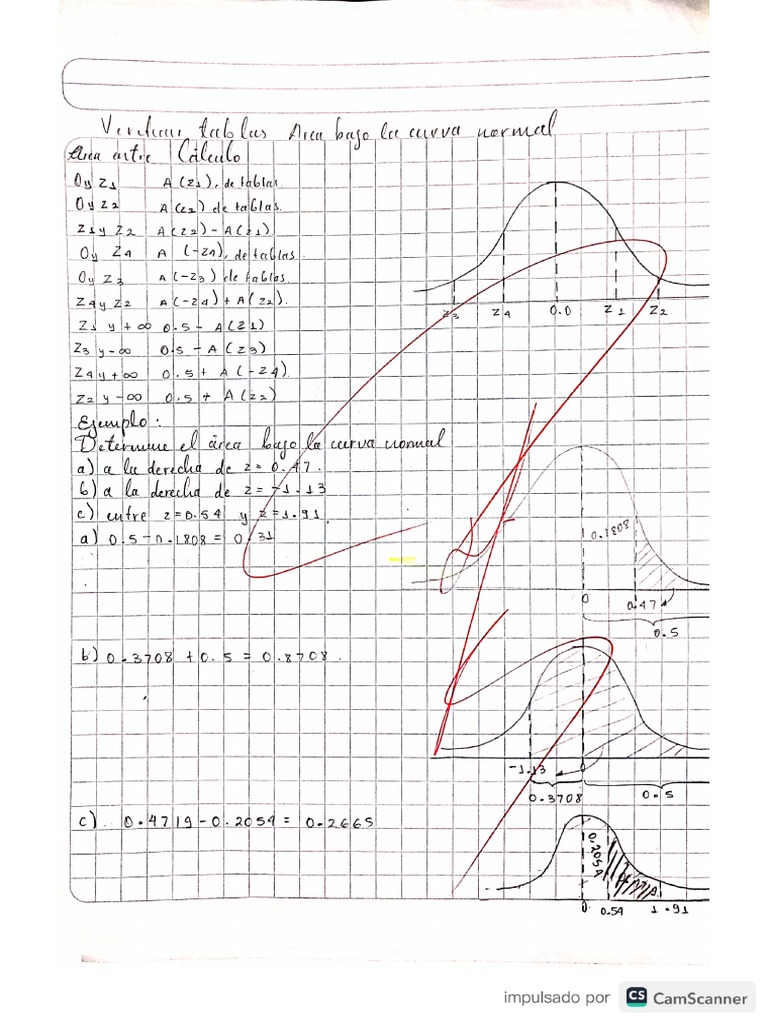 Verificar tablas Area bajo la curva normal
Area entre Cálculo
0 y Z1 A(Z1), de tablas.
0 y Z2 A(Z2) de tablas.
Z1 y Z2 A(Z2) - A(Z1)
0 y Z4 A(-Z4), de tablas.
0 y Z3 A(-Z3) de tablas.
Z4 y Z2 A(-Z4) + A(Z2).
Z1 y +∞ 0.5 - A(Z1)
Z3 y -∞ 0.5 - A(Z3)
Z4 y +∞ 0.5 + A(-Z4)
Z2 y -∞ 0.5 + A(Z2)
Z3 Z4 0.0 Z1 Z2
Ejemplo:
Determine el área bajo la curva normal
a) a la derecha de z = 0.47.
b) a la derecha de z = -1.13
c) entre z = 0.54 y z = 1.91.
a) 0.5 - 0.1808 = 0.31
0.1808
0 0.47
0.5
b) 0.3708 + 0.5 = 0.8708
-1.13 0
0.3708 0.5
c) 0.4719 - 0.2054 = 0.2665
0.2054
0 0.54 1.91
impulsado por CS CamScanner